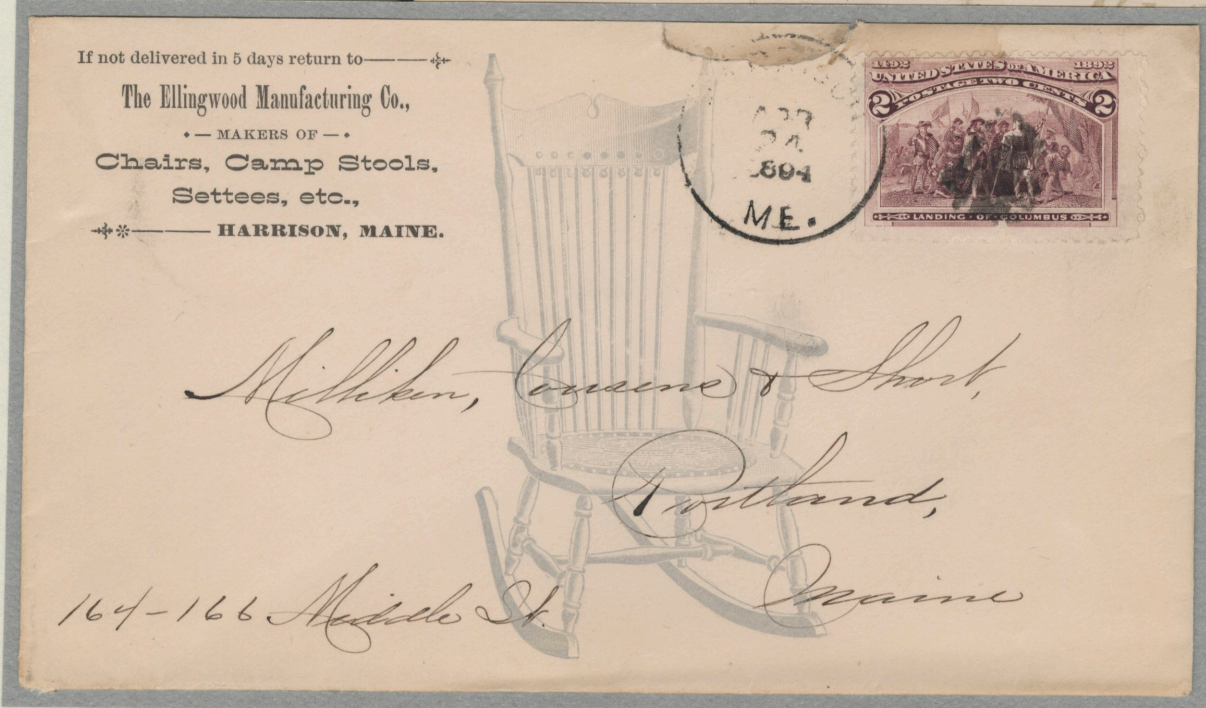 If not delivered in 5 days return to
The Ellingwood Manufacturing Co.,
MAKERS OF
Chairs, Camp Stools,
Settees, etc.,
HARRISON, MAINE.
APR
24
1894
ME.
1492 1892
UNITED STATES OF AMERICA
POSTAGE TWO CENTS
2 2
LANDING · OF · COLUMBUS
Milliken, Cousens & Short,
Portland,
Maine
164-166 Middle St.